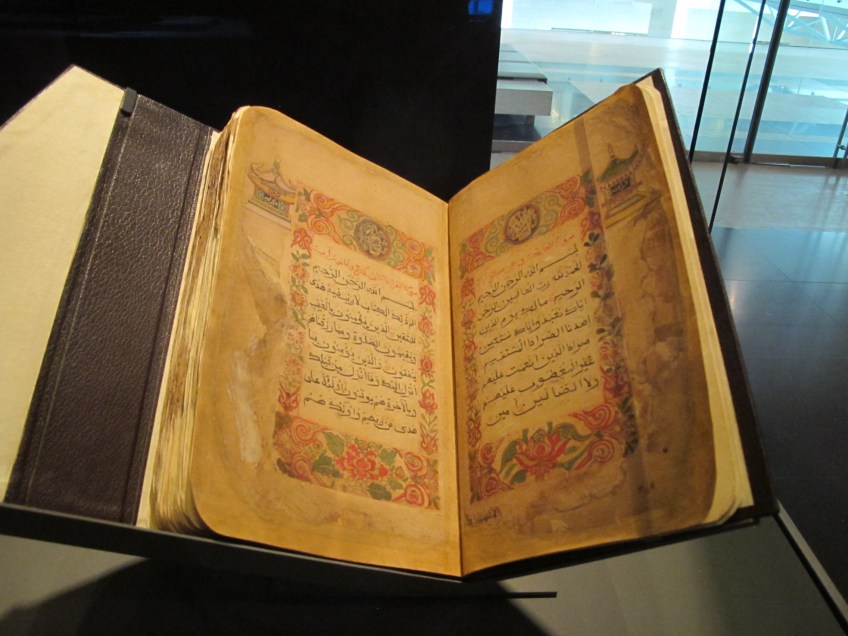 بسم الله الرحمن الرحيم
الحمد لله رب العالمين الرحمن
الرحيم مالك يوم الدين
اياك نعبد واياك نستعين
اهدنا الصراط المستقيم
صراط الذين انعمت عليهم
غير المغضوب عليهم
ولا الضالين امين
بسم الله الرحمن الرحيم
الم ذلك الكتاب لا ريب فيه هدى
للمتقين الذين يؤمنون بالغيب
ويقيمون الصلوة ومما رزقناهم
ينفقون والذين يؤمنون بما
انزل اليك وما انزل من قبلك
وبالآخرة هم يوقنون اولئك على
هدى من ربهم واولئك هم